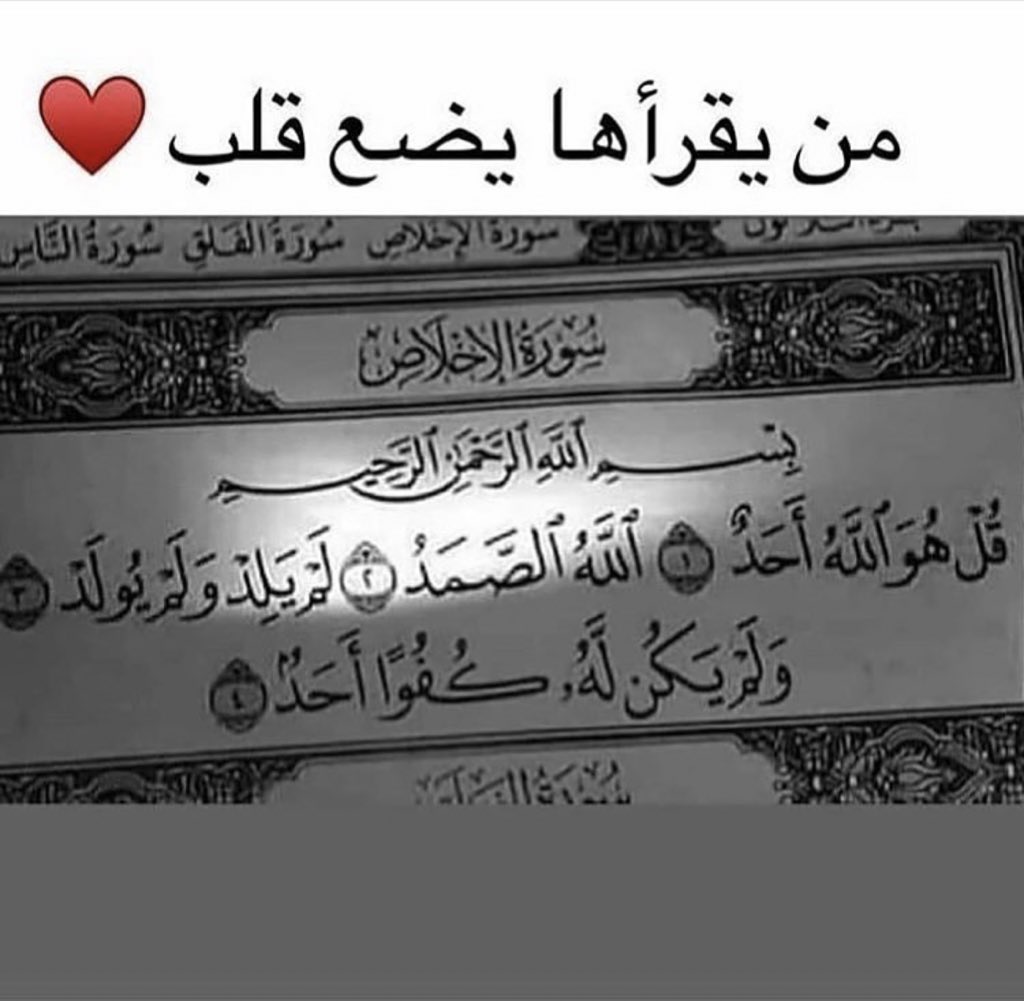 من يقرأها يضع قلب ❤️
سورة الإخلاص سورة الفلق سورة الناس
سُورَةُ الإِخْلَاصِ
بِسْمِ ٱللَّهِ ٱلرَّحْمَٰنِ ٱلرَّحِيمِ
قُلْ هُوَ ٱللَّهُ أَحَدٌ ١ ٱللَّهُ ٱلصَّمَدُ ٢ لَمْ يَلِدْ وَلَمْ يُولَدْ ٣
وَلَمْ يَكُن لَّهُۥ كُفُوًا أَحَدٌۢ ٤